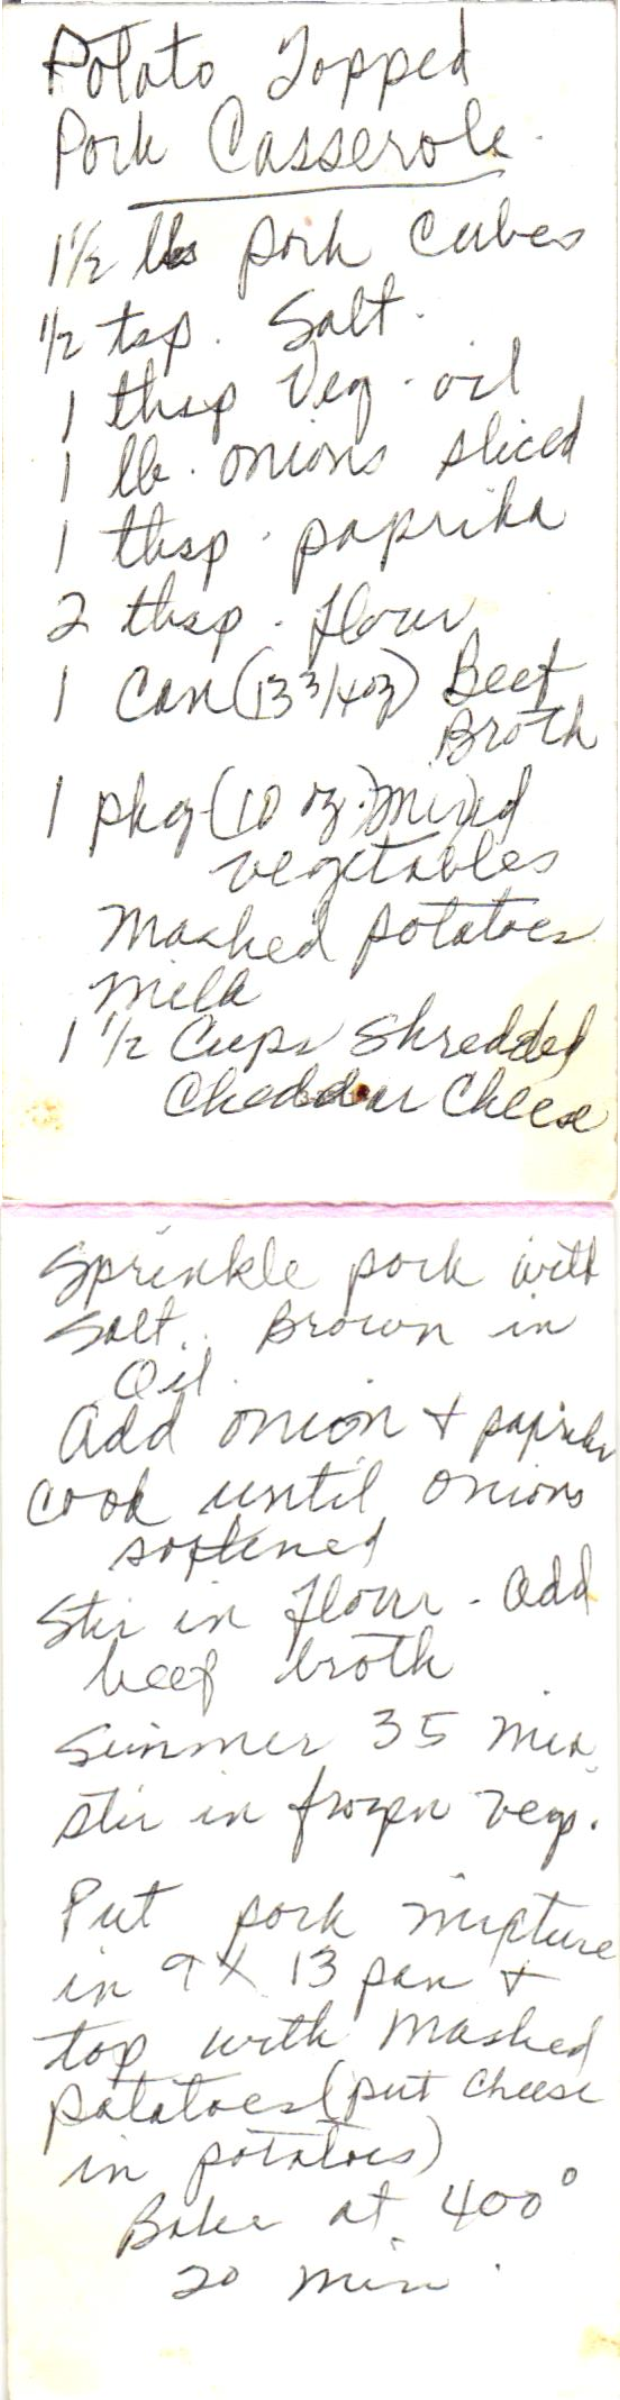 Potato Topped
Pork Casserole.
1 1/2 lbs pork cubes
1/2 tsp. Salt.
1 tbsp Veg. oil
1 lb. onions sliced
1 tbsp. paprika
2 tbsp. flour
1 Can (13 3/4 oz) Beef
Broth
1 pkg (10 oz.) mixed
vegetables
Mashed potatoes
Milk
1 1/2 Cups Shredded
Cheddar Cheese
Sprinkle pork with
Salt.. Brown in
Oil.
Add onion + paprika
cook until onions
softened
Stir in flour - add
beef broth
Simmer 35 min.
Stir in frozen veg.
Put pork mixture
in 9 X 13 pan +
top with mashed
potatoes (put cheese
in potatoes)
Bake at 400°
20 min.